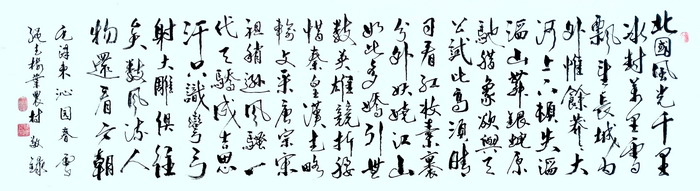 北國風光千里
冰封萬里雪
飄望長城內
外惟餘莽々大
河上下頓失滔
滔山舞銀蛇原
馳蠟象欲與天
公試比高須晴
日看紅妝素裹
分外妖嬈江山
如此多嬌引無
數英雄競折腰
惜秦皇漢武略
輸文采唐宗宋
祖稍遜風騷一
代天驕成吉思
汗只識彎弓
射大雕俱往
矣數風流人
物還看今朝
毛澤東沁園春雪
農村敬錄